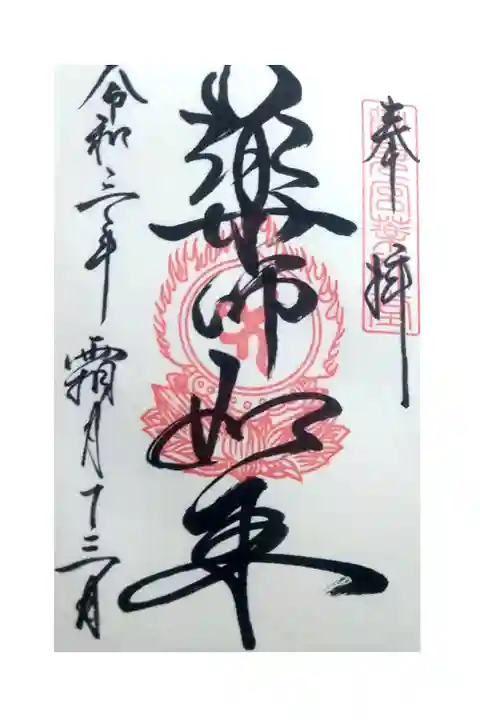 奉拝
薬師如来
令和三年 霜月十三日